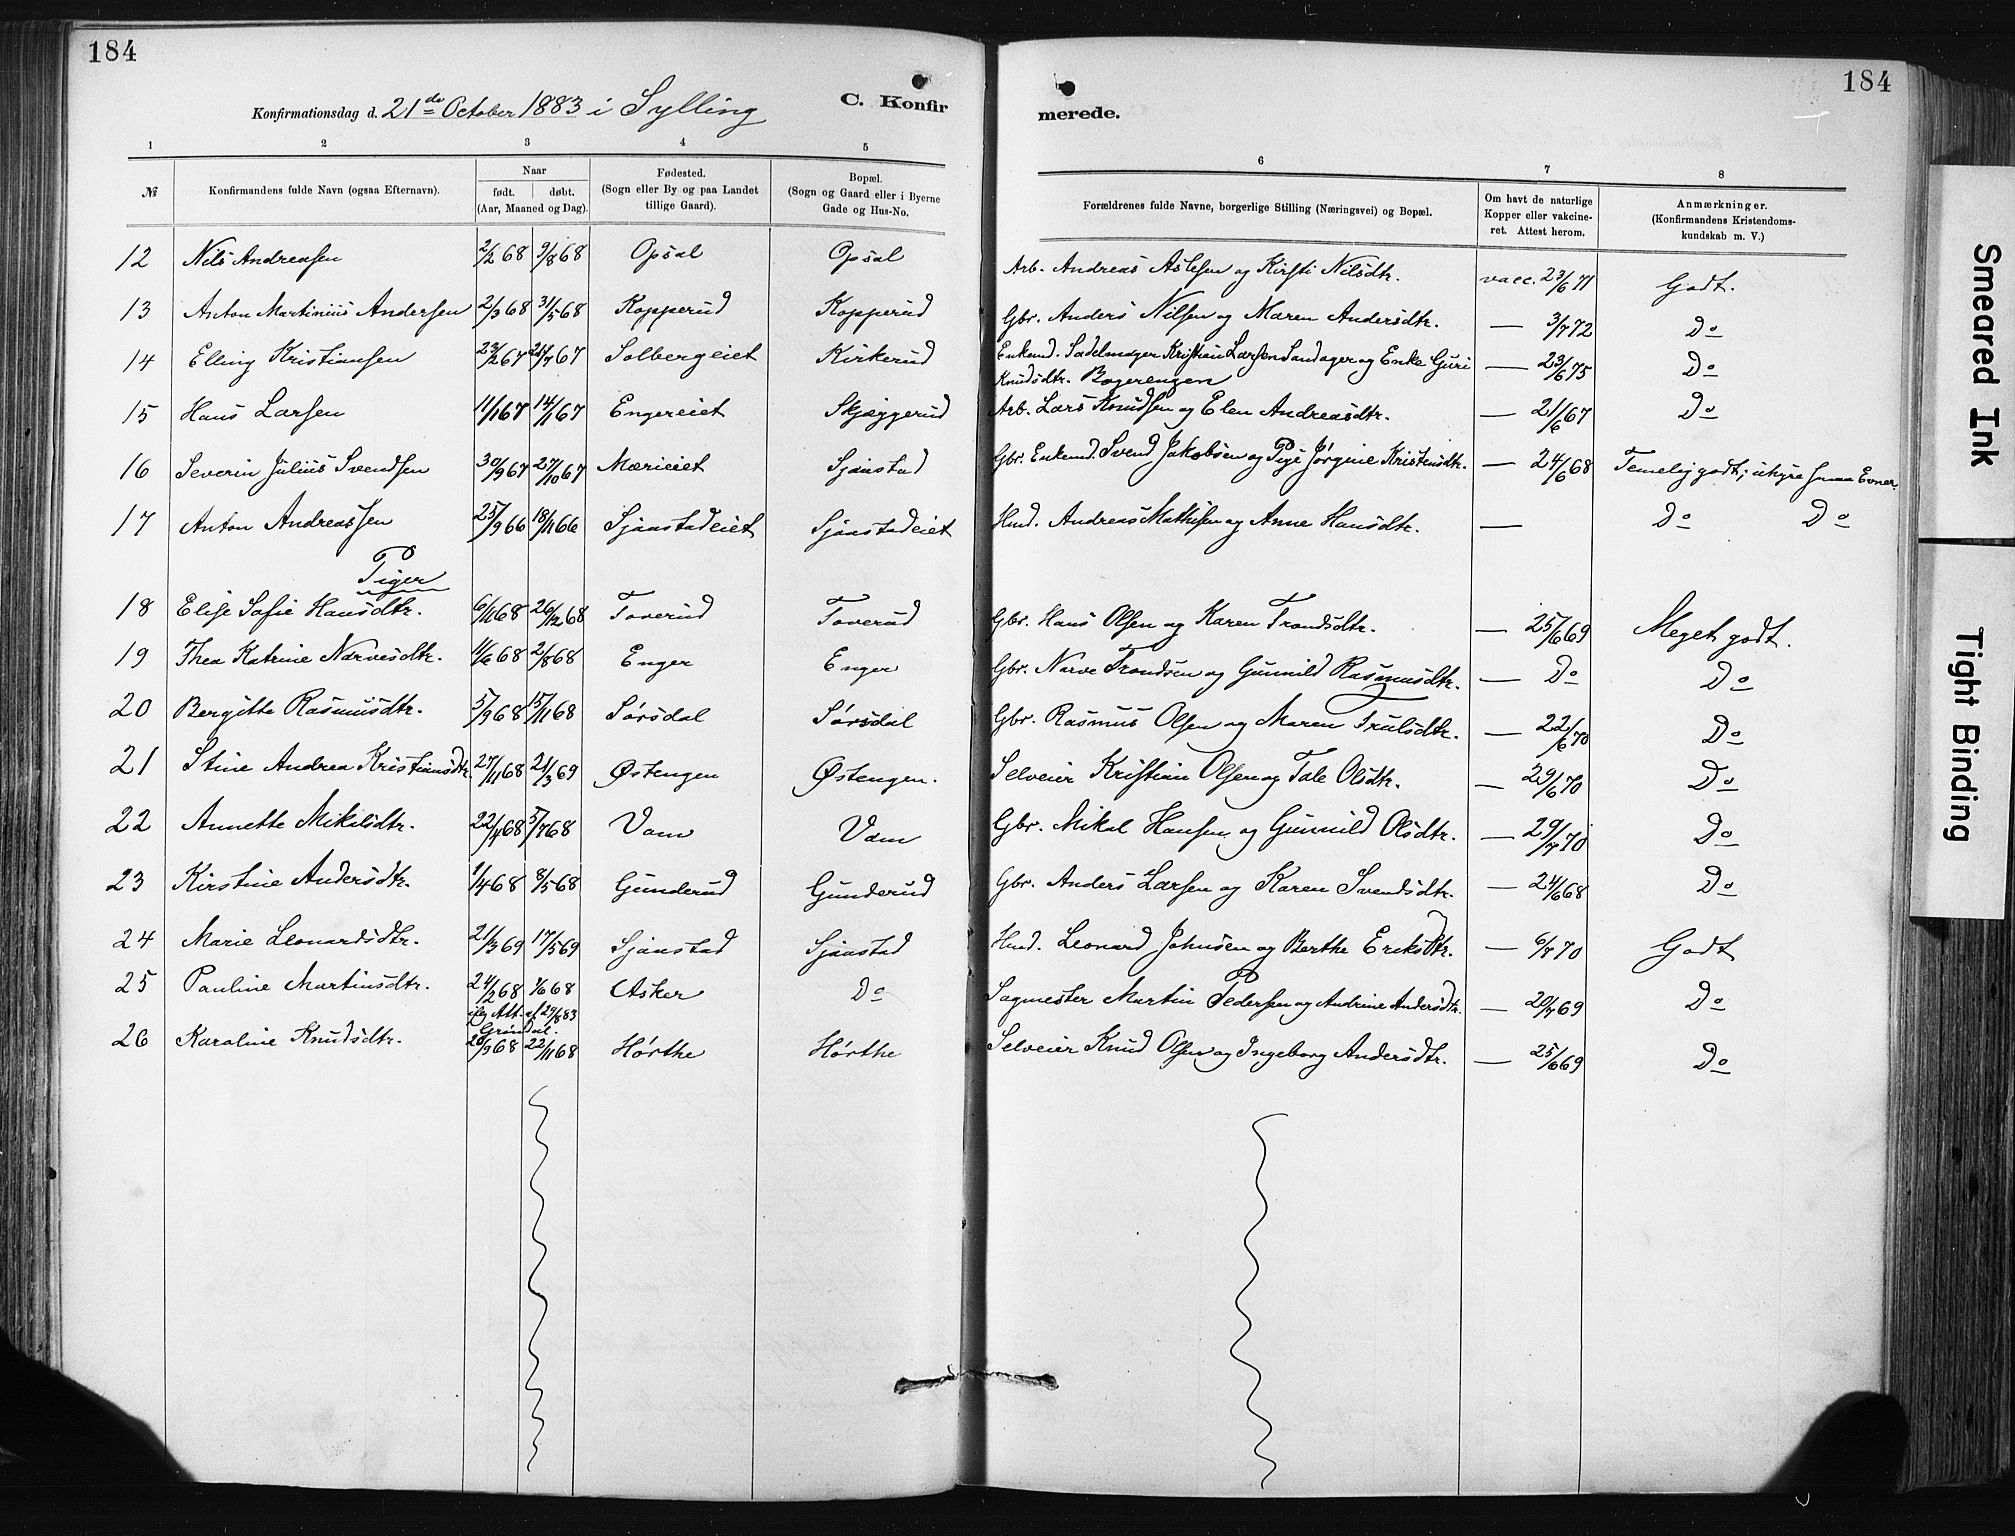 184
184
Konfirmationsdag d. 21de October 1883 i Sylling
C. Konfir
merede.
1 2 3 4 5 6 7 8
№ Konfirmandens fulde Navn (ogsaa Efternavn). Naar født. døbt. (Aar, Maaned og Dag). Fødested. (Sogn eller By og paa Landet tillige Gaard). Bopæl. (Sogn og Gaard eller i Byerne Gade og Hus-No. Forældrenes fulde Navne, borgerlige Stilling (Næringsvei) og Bopæl. Om havt de naturlige Kopper eller vakcineret. Attest herom. Anmærkninger. (Konfirmandens Kristendomskundskab m. V.)
12 Nils Andreasen 2/2 68 9/8 68 Opsal Opsal Arb. Andreas Aslesen og Kirsti Nilsdtr. vacc. 23/6 71 Godt.
13 Anton Martinius Andersen 2/3 68 31/5 68 Kopperud Kopperud Gbr. Anders Nilsen og Maren Andersdtr. — 3/7 72 Do
14 Elling Kristiansen 23/2 67 21/7 67 Solbergeiet Kirkerud Enkemd. Sadelmager Kristian Larsen Sandager og Enke Guri
Knudsdtr. Bogerengen — 23/6 75 Do
15 Hans Larsen 11/1 67 14/1 67 Engereiet Skjæggerud Arb. Lars Knudsen og Elen Andreasdtr. — 21/6 67 Do
16 Severin Julius Svendsen 30/9 67 27/10 67 Mærieiet Sjaastad Gbr. Enkemd. Svend Jakobsen og Pige Jørgine Kristensdtr. — 24/6 68 Temelig godt; uhyre smaa Evner.
17 Anton Andreassen 25/9 66 18/11 66 Sjaastadeiet Sjaastadeiet Hmd. Andreas Mathisen og Anne Hansdtr. — Do Do
Piger
18 Elise Sofie Hansdtr. 6/11 68 26/12 68 Toverud Toverud Gbr. Hans Olsen og Karen Trondsdtr. — 25/6 69 Meget godt.
19 Thea Katrine Narvesdtr. 11/6 68 2/8 68 Enger Enger Gbr. Narve Trondsen og Gunnild Rasmusdtr. — Do Do
20 Bergitte Rasmusdtr. 5/9 68 15/11 68 Sørsdal Sørsdal Gbr. Rasmus Olsen og Maren Trulsdtr. — 22/6 70 Do
21 Stine Andrea Kristiansdtr. 27/11 68 21/3 69 Østengen Østengen. Selveier Kristian Olsen og Tale Olsdtr. — 29/6 70 Do
22 Annette Mikalsdtr. 22/4 68 5/7 68 Vam Vam Gbr. Mikal Hansen og Gunnild Olsdtr. — 29/7 70 Do
23 Kirstine Andersdtr. 1/4 68 8/5 68 Gunderud Gunderud Gbr. Anders Larsen og Karen Svendsdtr. — 24/6 68 Do
24 Marie Leonardsdtr. 21/3 69 17/5 69 Sjaastad Sjaastad Hmd. Leonard Johnsen og Berthe Eriksdtr. — 6/7 70 Godt
25 Pauline Martinsdtr. 24/2 68 1/6 68 Asker Do Sagmester Martin Pedersen og Andrine Andersdtr. — 20/7 69 Do
iflg Att. af 29/8 83
Grøndal.
26 Karoline Knudsdtr. 20/9 68 22/11 68 Hørthe Hørthe Selveier Knud Olsen og Ingeborg Andersdtr. — 25/6 69 Do
Smeared Ink
Tight Binding